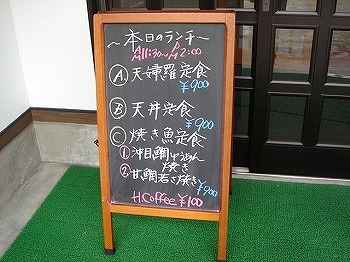 ～本日のランチ～
A11:30～P2:00
Ⓐ天婦羅定食
¥900
Ⓑ天丼定食
¥900
Ⓒ焼き魚定食
①沖目鯛
焼き
②甘鯛若さ焼き
¥900
H.Coffee ¥100